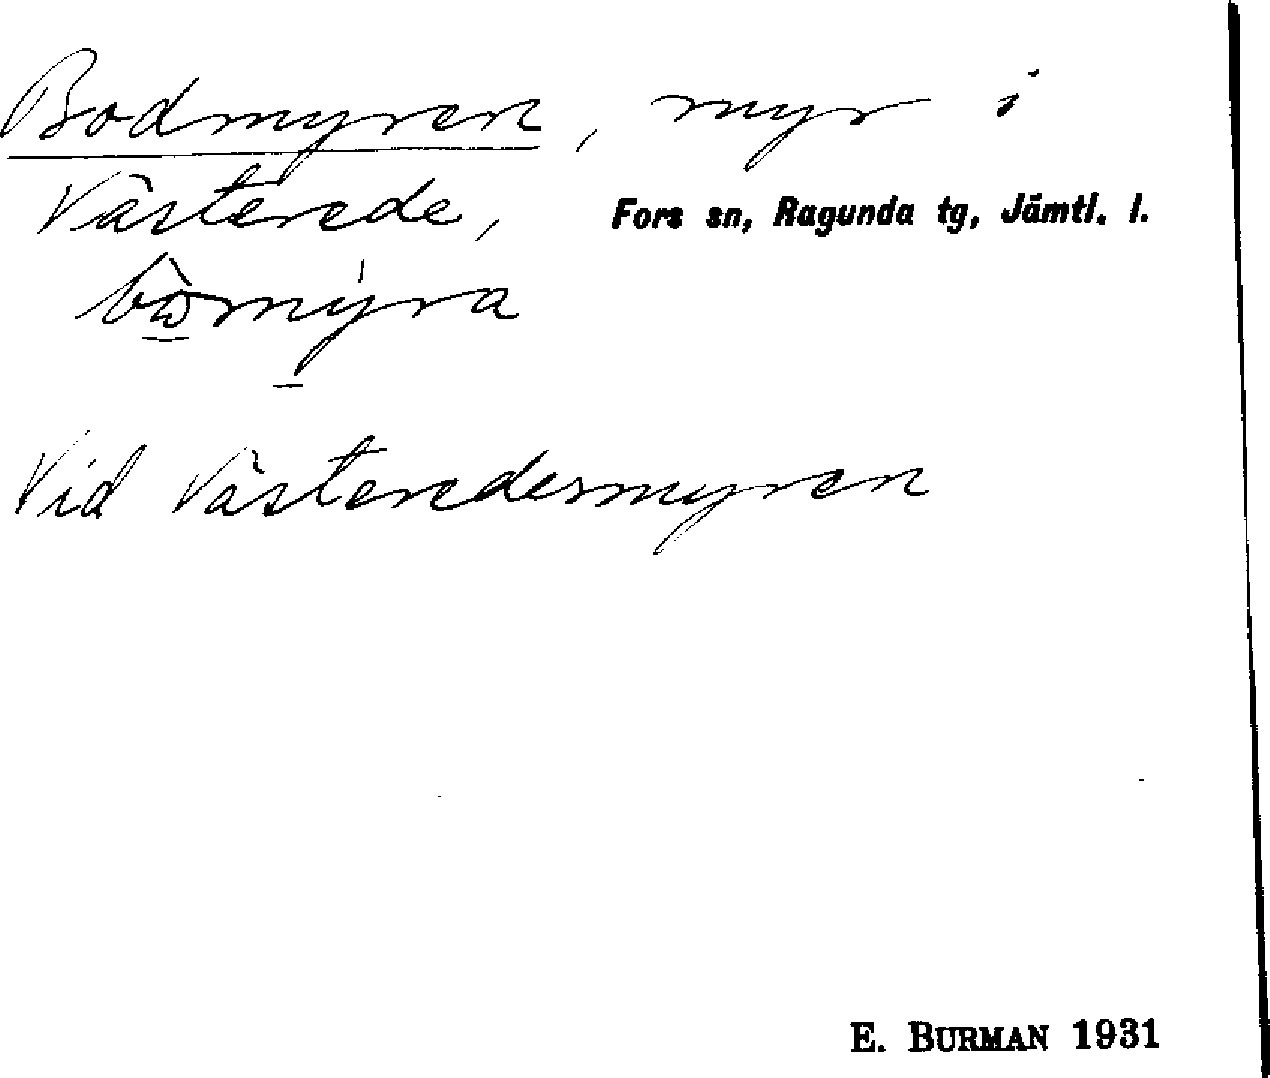 Bodmyren, myr i
Västerede, Fors sn, Ragunda tg, Jämtl. l.
Vid Västeredesmyren
E. BURMAN 1931